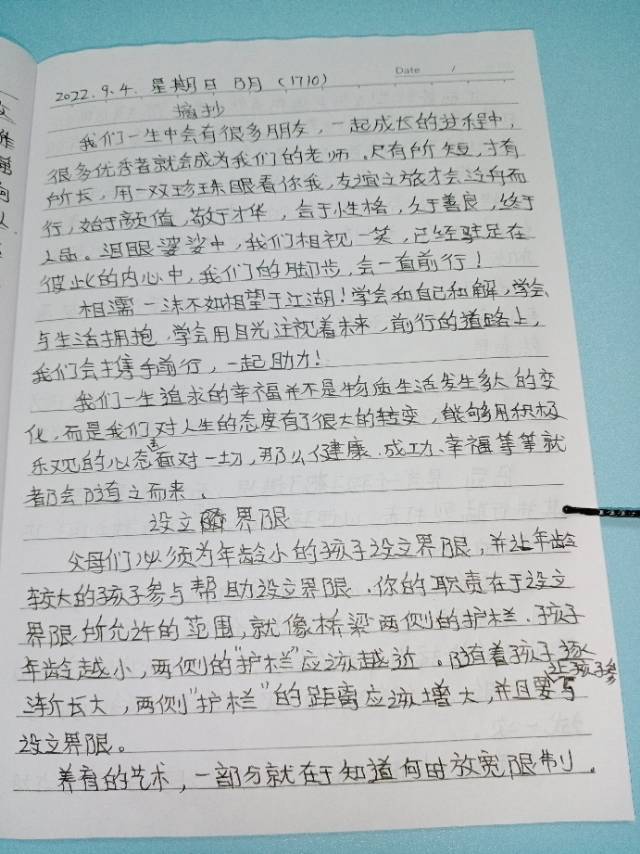 Date /
2022.9.4. 星期日 阴 (1710)
摘抄
我们一生中会有很多朋友，一起成长的过程中，
很多优秀者就会成为我们的老师。尺有所短，寸有
所长，用一双珍珠眼看你我，友谊之旅才会逆舟而
行，始于颜值，敬于才华，合于性格，久于善良，终于
人品。泪眼婆娑中，我们相视一笑，已经驻足在
彼此的内心中，我们的脚步，会一直前行！
相濡一沫不如相望于江湖！学会和自己和解，学会
与生活拥抱，学会用目光注视着未来，前行的道路上，
我们会携手前行，一起助力！
我们一生追求的幸福并不是物质生活发生多大的变
化，而是我们对人生的态度有了很大的转变，能够用积极
乐观的心态去面对一切，那么健康、成功、幸福等等就
都会随之而来。
设立界限
父母们必须为年龄小的孩子设立界限，并让年龄
较大的孩子参与帮助设立界限。你的职责在于设立
界限所允许的范围，就像桥梁两侧的护栏。孩子
年龄越小，两侧的"护栏"应该越近。随着孩子逐
渐长大，两侧"护栏"的距离应该增大，并且要让孩子参与
设立界限。
养育的艺术，一部分就在于知道何时放宽限制。